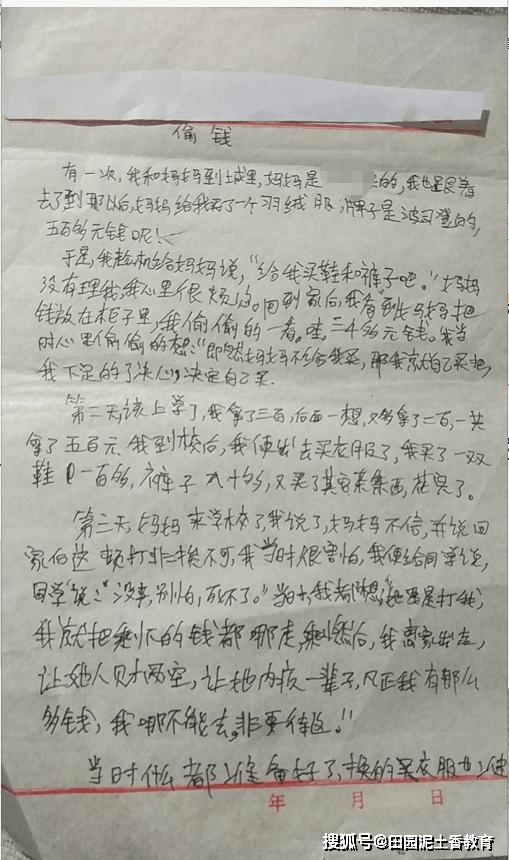 偷钱
有一次，我和妈妈到城里，妈妈是的，我也是跟着
去了到那以后，妈妈给我买了一个羽绒服，牌子是波司登的，
五百多元钱呢！
于是，我趁机给妈妈说，“给我买鞋和裤子吧。”妈妈
没有理我，我心里很烦的。回到家后，我看到妈妈把
钱放在柜子里，我偷偷的一看。哇，三4千多元钱。我当
时心里偷偷的想：“即然妈妈不给我买，那我就自己买吧，
我下定的了决心，决定自己买.
第二天该上学了，我拿了三百，后面一想，又多拿了二百，一共
拿了五百元.我到校后，我便出去买衣服了，我买了一双
鞋一百多，裤子九十多，又买了其它杂东西，花完了。
第三天，妈妈来学校了，我说了，妈妈不信，并说回
家后这顿打非挨不可，我当时很害怕，我便给同学说，
同学说：“没事，别怕，死不了。”当时我都想她要是打我，
我就把剩下的钱都哪走，然后，我离家出走，
让她人财两空，让她内疚一辈子，凡正我有那么
多钱，我哪不能去，非要待这。！”
当时什么都准备好了，换的买衣服也
年 月 日
搜狐号@田园泥土香教育